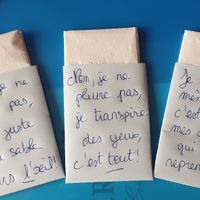 je ne
pas,
juste
sable
l'œil!"
Non, je ne
pleure pas,
je transpire
des yeux,
c'est tout!
Je
mêm
c'est
mes
qui
repren